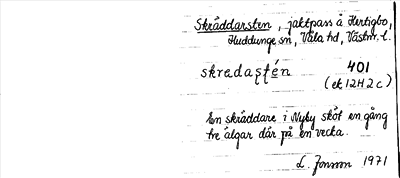 Skräddarsten, jaktpass å Hertigbo,
Huddunge sn, Våla hd, Västm. l.
skredaʂʈén
401
(ek 12H 2c)
En skräddare i Nyby sköt en gång
tre älgar där på en vecka.
L. Jonsson 1971